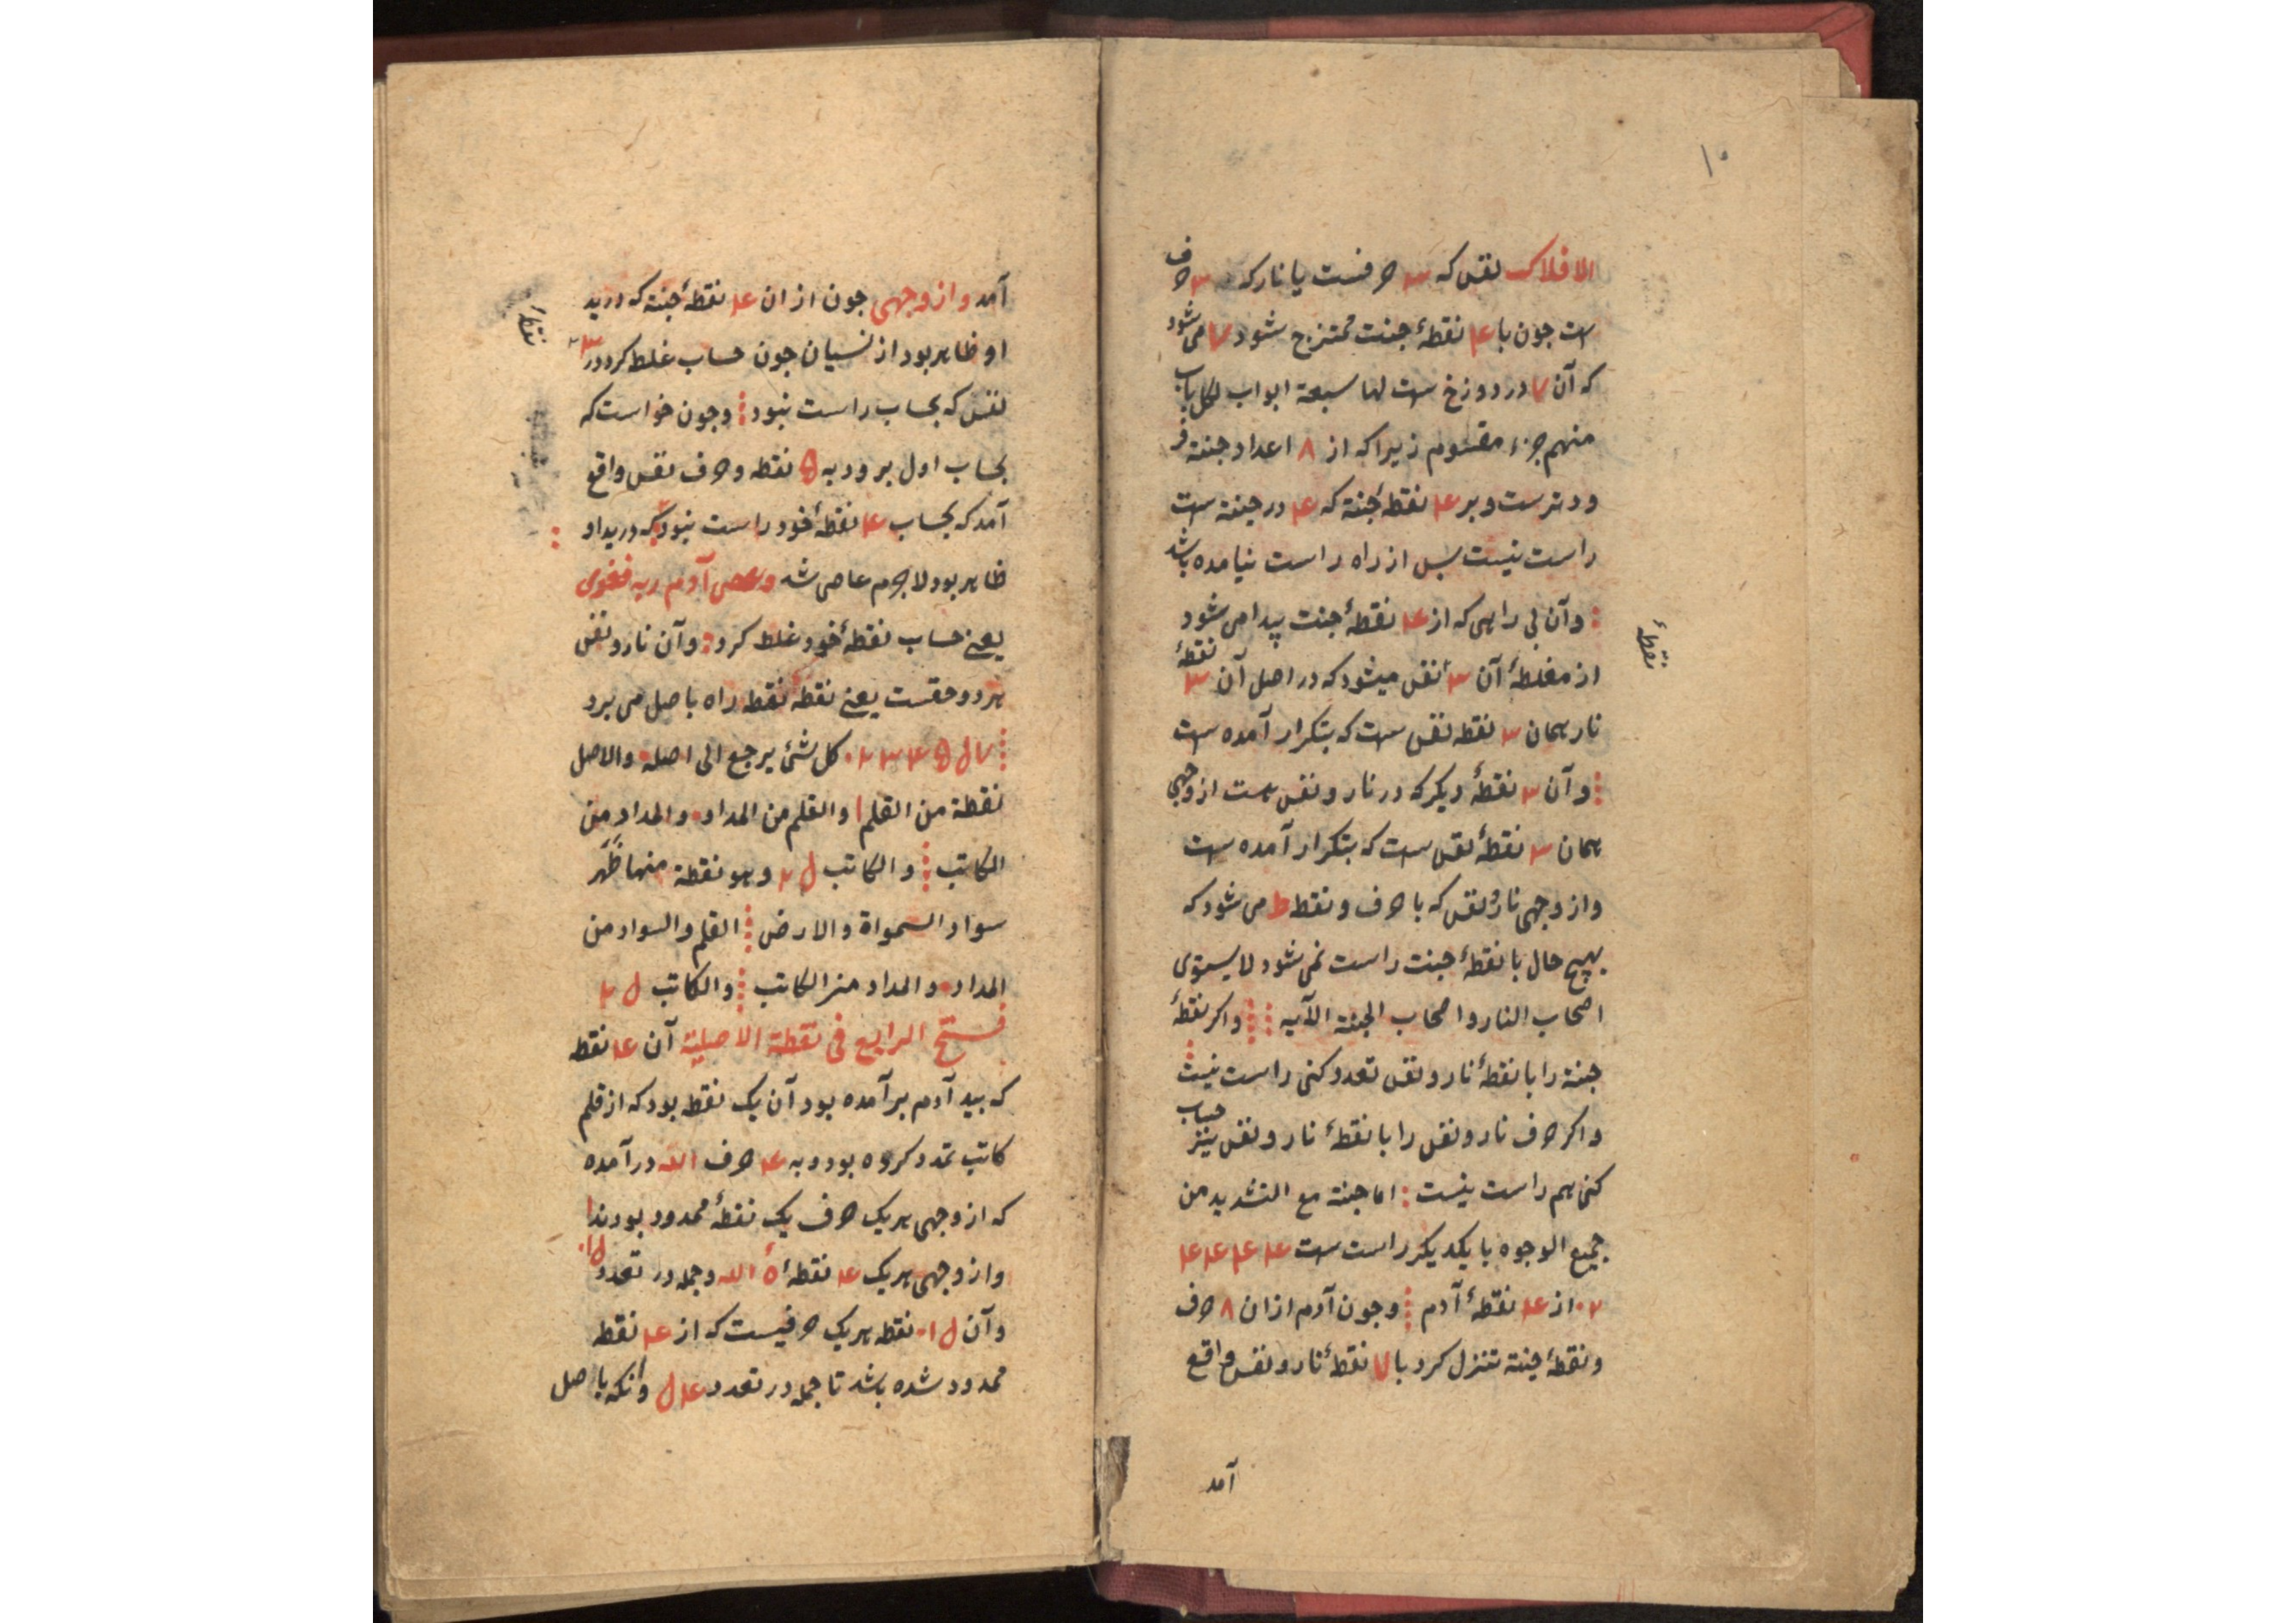 ۱۰
الافلاک نفس که ۳ حرفست یا نار که ۳ حرف
ست جون با ۴ نقطهٔ جنت ممتزج شود ۷ می شود
که آن ۷ در دوزخ ست لها سبعة ابواب لکل باب
منهم جزء مقسوم زیرا که از ۸ اعداد جنة فر
ودترست و بر ۴ نقطهٔ جنة که ۴ در جنة ست
راست نیست بس از راه راست نیامده باشد
و آن بی راهی که از ۴ نقطهٔ جنت پیدا می شود
نقطهٔ
از مغلطهٔ آن ۳ نفس میشود که در اصل آن ۳ نقطهٔ
نار همان ۳ نقطه نفس ست که بتکرار آمده ست
و آن ۳ نقطهٔ دیکر که در نار و نفس ست از وجهی
همان ۳ نقطهٔ نفس ست که بتکرار آمده ست
و از وجهی نار و نفس که با حرف و نقطه ط می شود که
بهیچ حال با نقطهٔ جنت راست نمی شود لا یستوی
اصحاب النار و اصحاب الجنة الآیه و اکر نقطهٔ
جنة را با نقطهٔ نار و نفس تعدد کنی راست نیست
و اکر حرف نار و نفس را با نقطهٔ نار و نفس نیز حساب
کنی هم راست نیست اما جنة مع التشدید من
جمیع الوجوه با یکدیکر راست ست ۴ ۴ ۴ ۴
۲۰ از ۴ نقطهٔ آدم و جون آدم ازان ۸ حرف
و نقطهٔ جنة تنزل کرد با ۷ نقطهٔ نار و نفس واقع
آمد
آمد و از وجهی جون ازان ۴ نقطهٔ جنة که در ید
نقطهٔ
او ظاهر بود از نسیان جون حساب غلط کرد در ۳
نفس که بحساب راست نبود و جون خواست که
بحساب اول برود به ۵ نقطه و حرف نفس واقع
آمد که بحساب ۴ نقطهٔ خود راست نبود که در ید او
ظاهر بود لاجرم عاصی شد وعصی آدم ربه فغوی
یعنی حساب نقطهٔ خود غلط کرد و آن نار و نفس
هر دو حقست یعنی نقطه نقطه راه باصل می برد
۷ ل ۵ ۴ ۳ ۲ ۰ کل شئ یرجع الی اصله والاصل
نقطة من القلم والقلم من المداد والمداد من
الکاتب والکاتب ل ۲ وهو نقطة منها ظهر
سواد السمواة والارض القلم والسواد من
المداد والمداد من الکاتب والکاتب ل ۲
فتح الرابع فی نقطة الاصلیة آن ۴ نقطه
که بید آدم برآمده بود آن یک نقطه بود که از قلم
کاتب تمدد کرده بود و به ۴ حرف الله درآمده
که از وجهی هر یک حرف یک نقطهٔ ممدود بودند
و از وجهی هر یک ۴ نقطهٔ الله و جمله در تعدد ل ۱۰
و آن ل ۱۰ نقطه هر یک حرفیست که از ۴ نقطه
ممدود شده باشد تا جمله در تعدد ۴ ل وانکه باصل